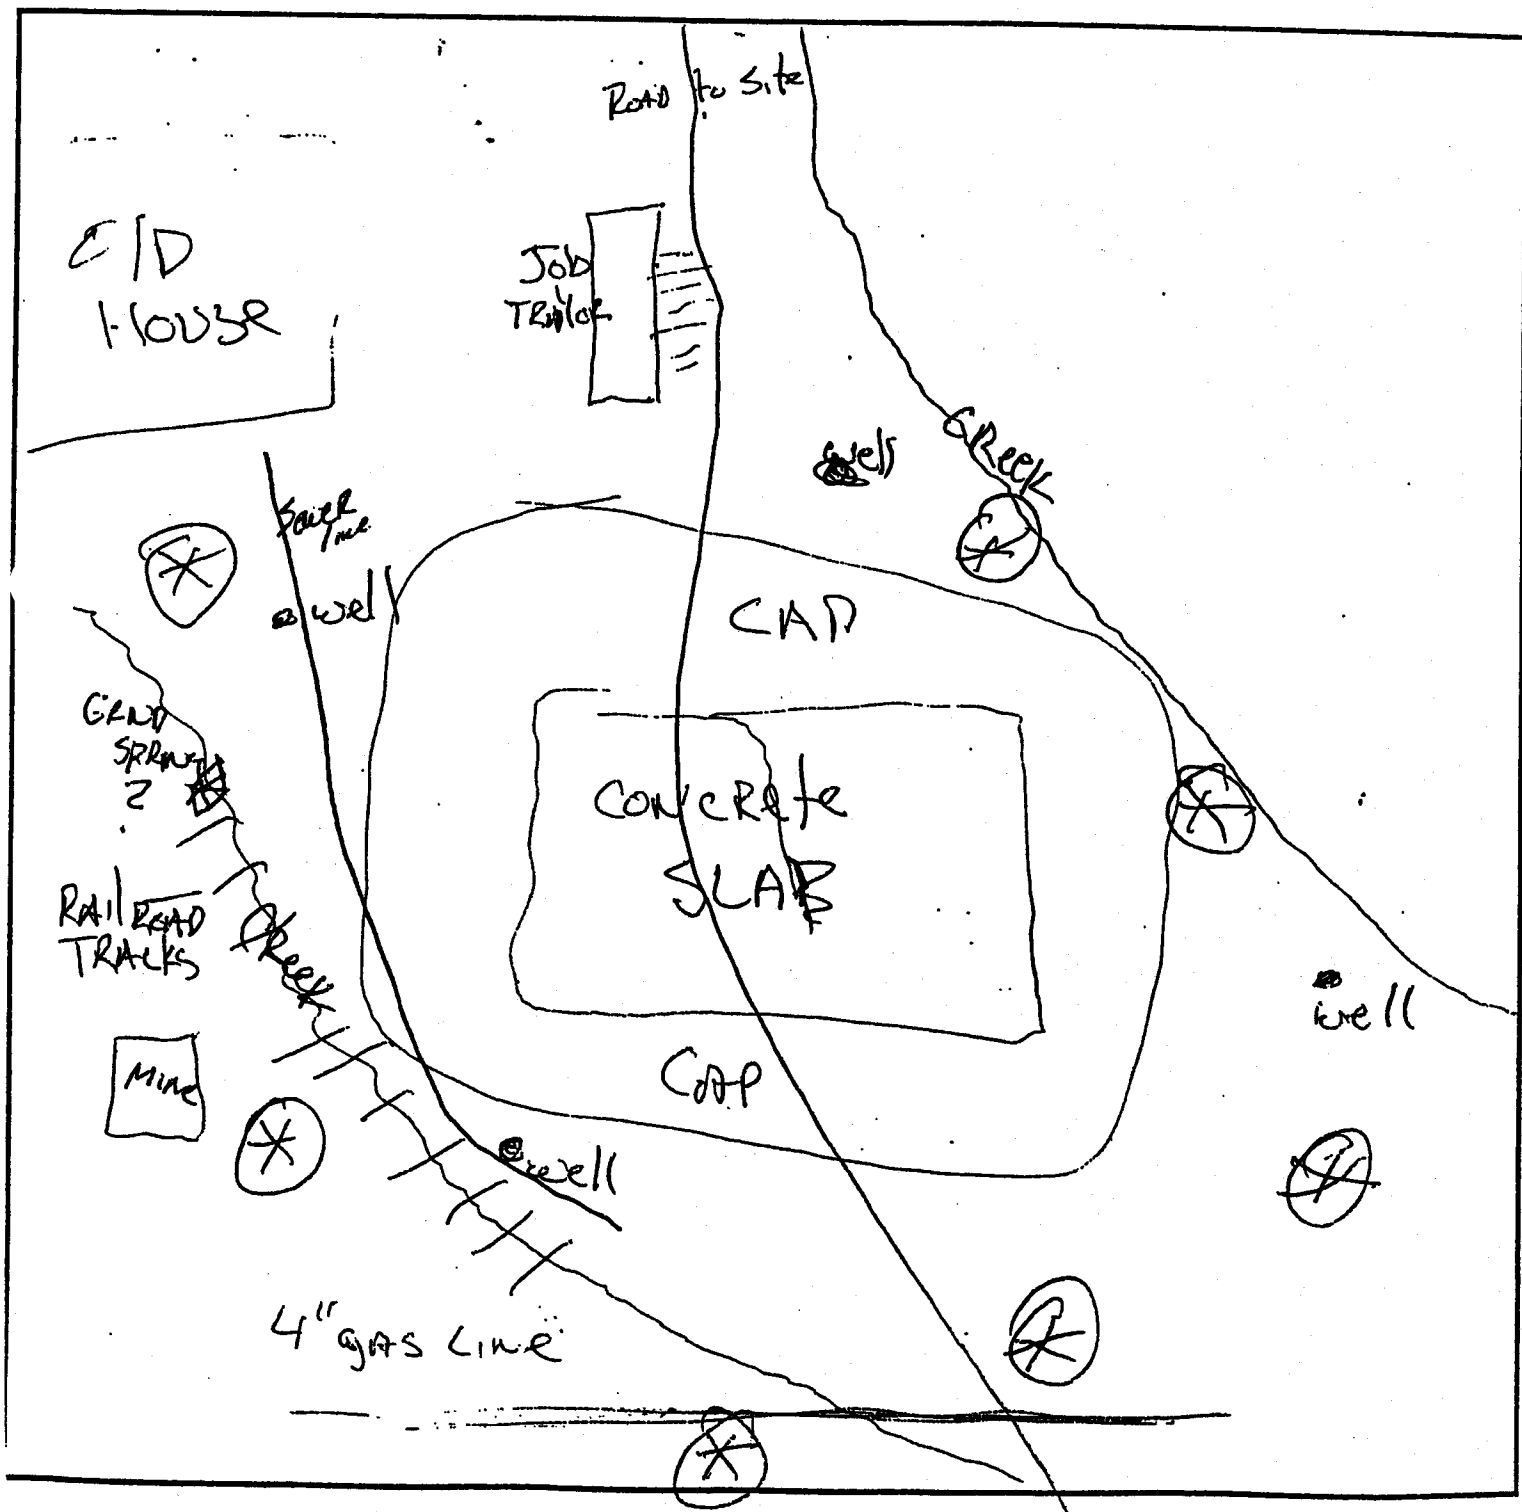 Road to Site
C/D
House
Job
Trailor
well
Creek
Sewer
line
well
CAP
Grnd
Spring
2
Concrete
SLAB
RailRoad
Tracks
Creek
well
Mine
CAP
well
4" gas Line